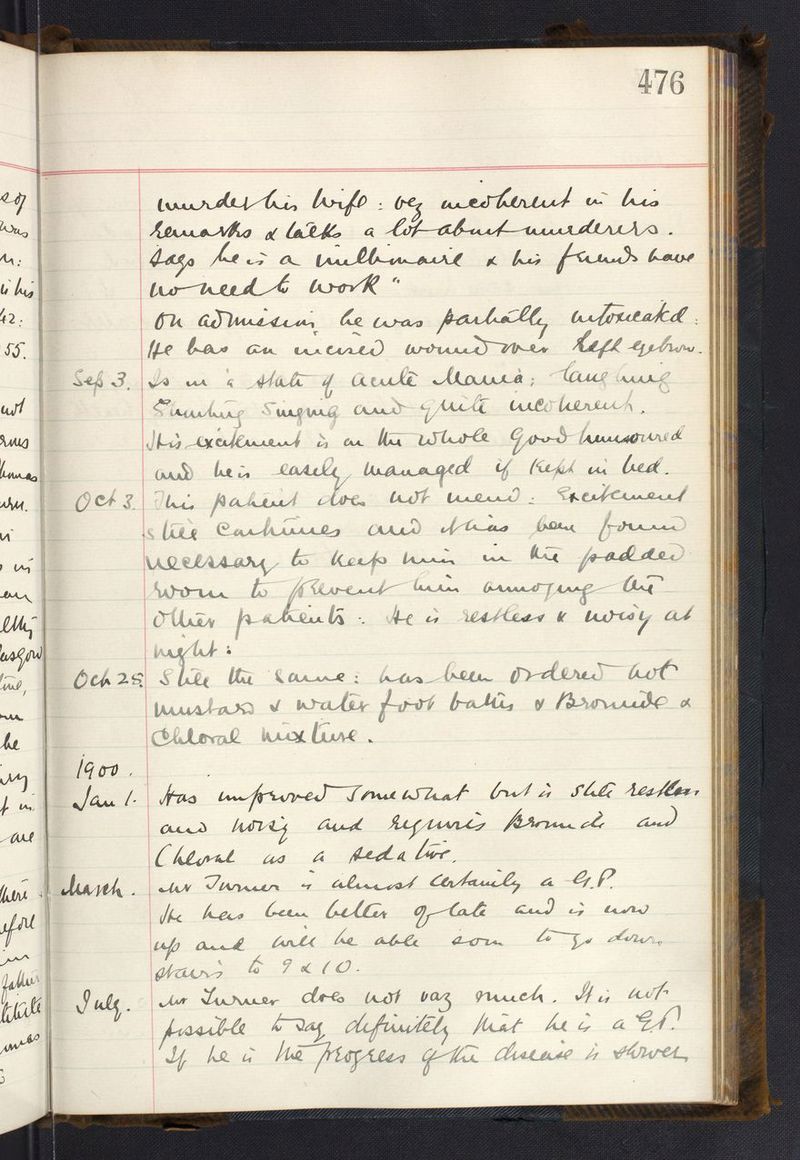 476
murder his wife : very incoherent in his
remarks & talks a lot about murderers.
Says he is a millionaire & his friends have
no need to work"
On admission he was partially intoxicated :
He has an incised wound over left eyebrow.
Sep 3. Is in a state of acute Mania; laughing
Shouting Singing and quite incoherent.
His excitement is on the whole good humoured
and he is easily managed if kept in bed.
Oct 3. This patient does not mend : Excitement
still continues and it has been found
necessary to keep him in the padded
room to prevent him annoying the
other patients : He is restless & noisy at
night :
Oct 25. Still the same : has been ordered hot
mustard & water foot baths & Bromide &
Chloral mixture.
1900.
Jan 1. Has improved somewhat but is still restless
and noisy and requires Bromide and
Chloral as a sedative.
March. Mr Turner is almost certainly a G.P.
He has been better of late and is now
up and will be able soon to go down
stairs to 9 & 10.
July. Mr Turner does not vary much. It is not
possible to say definitely that he is a G.P.
If he is the progress of the disease is slower